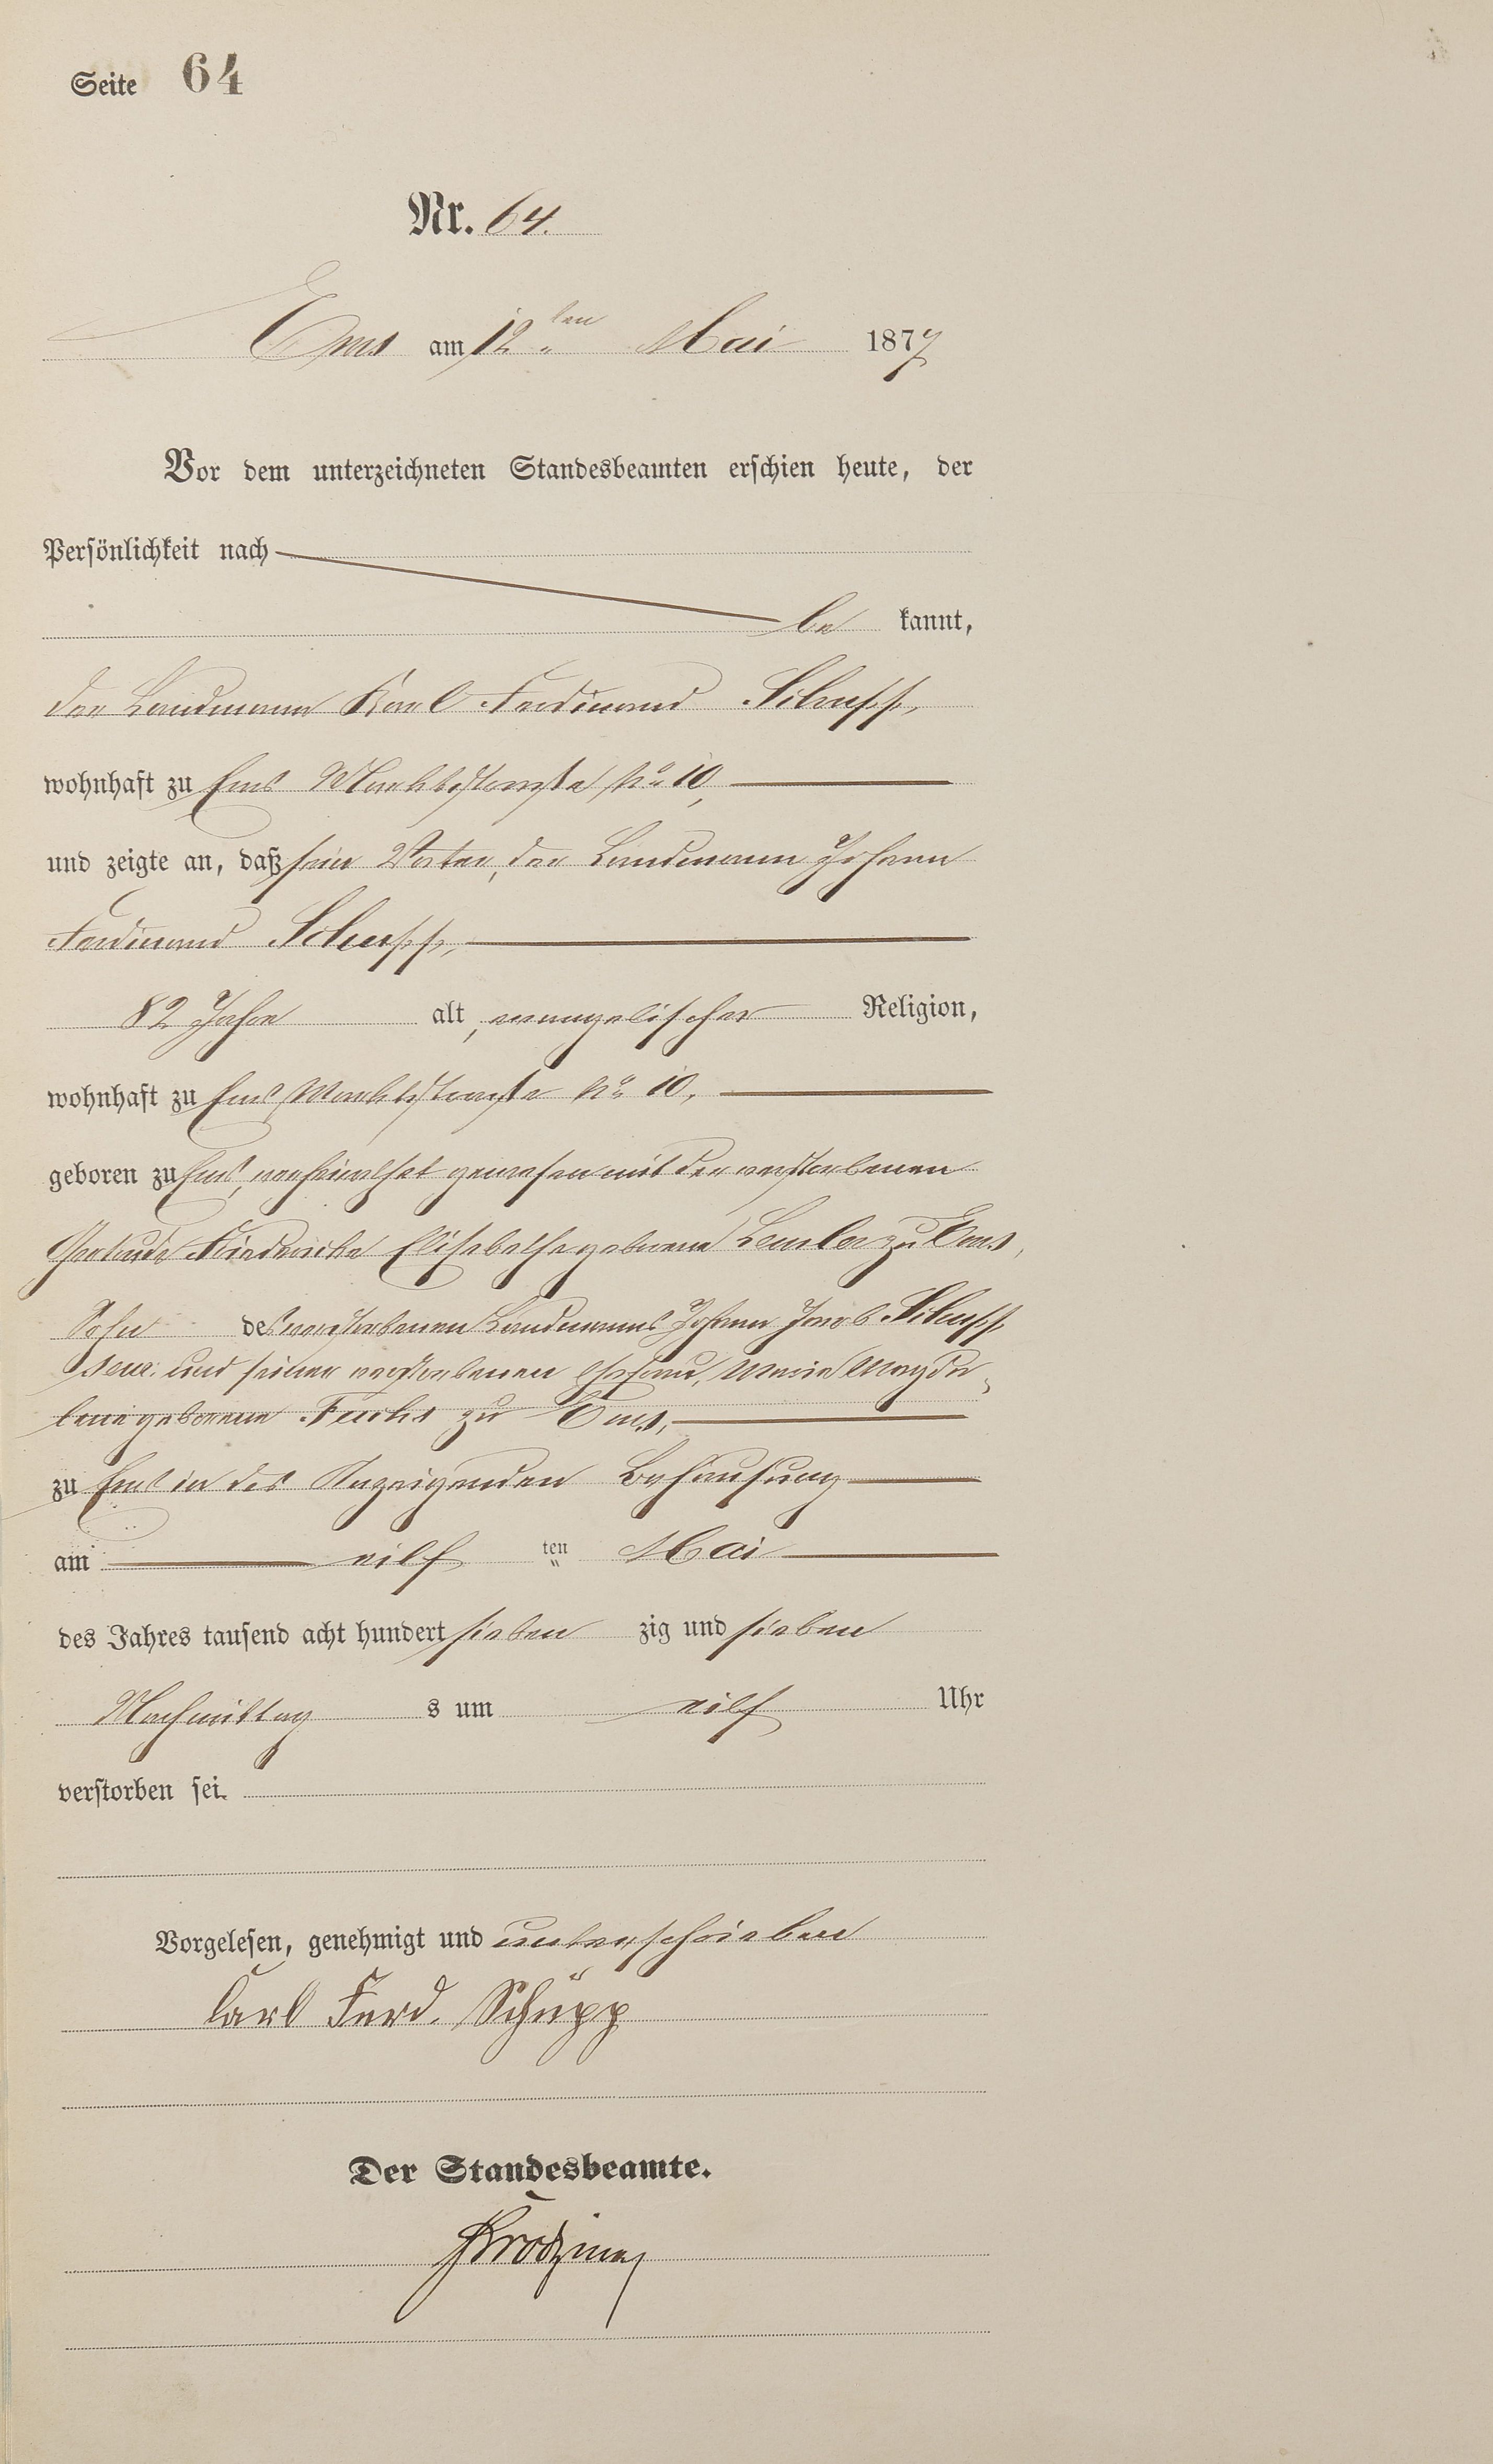 Seite 64
Nr. 64.
Ems am 12ten Mai 1877
Vor dem unterzeichneten Standesbeamten erschien heute, der
Persönlichkeit nach
be kannt,
der Landmann Karl Ferdinand Schupp,
wohnhaft zu Ems Marktstraße No 10,
und zeigte an, daß sein Vater, der Landmann Johann
Ferdinand Schupp,
82 Jahre alt, evangelischer Religion,
wohnhaft zu Ems, Marktstraße No 10,
geboren zu Ems, verheirathet gewesen mit der verstorbenen
Gertrude Friedericke Elisabethe geborene zu Ems,
Sohn des verstorbenen Landmanns Johann Jacob Schupp
senr. und seiner verstorbenen Ehefrau, Marie Magda-
lene geborene Fuchs zu Ems,
zu Ems in des Anzeigenden Behausung
am eilf ten Mai
des Jahres tausend acht hundert sieben zig und sieben
Nachmittag s um eilf Uhr
verstorben sei.
Vorgelesen, genehmigt und unterschrieben
Carl Ferd. Schupp
Der Standesbeamte.